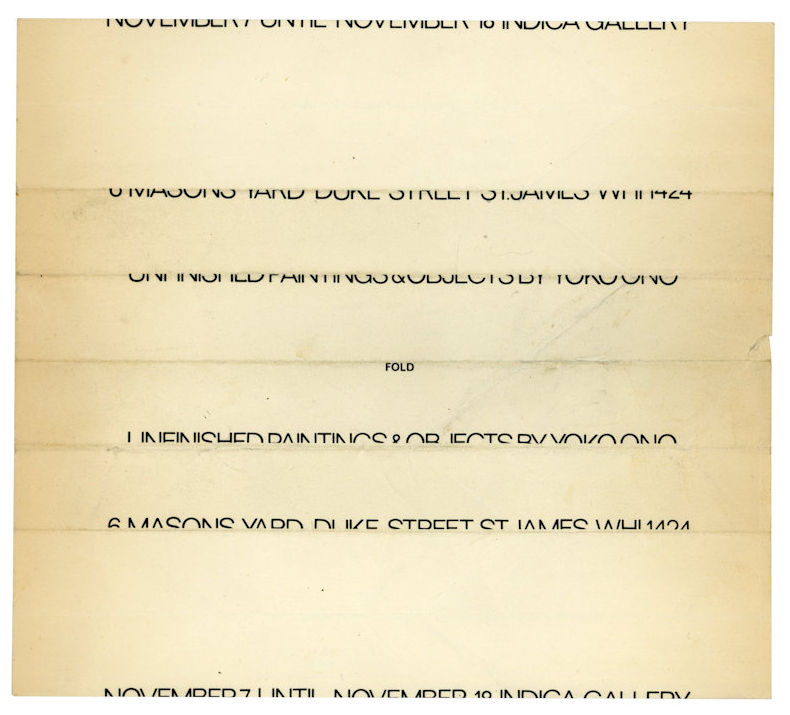 NOVEMBER 7 UNTIL NOVEMBER 18 INDICA GALLERY
6 MASONS YARD DUKE STREET ST.JAMES WHI 1424
UNFINISHED PAINTINGS & OBJECTS BY YOKO ONO
FOLD
UNFINISHED PAINTINGS & OBJECTS BY YOKO ONO
6 MASONS YARD DUKE STREET ST.JAMES WHI 1424
NOVEMBER 7 UNTIL NOVEMBER 18 INDICA GALLERY